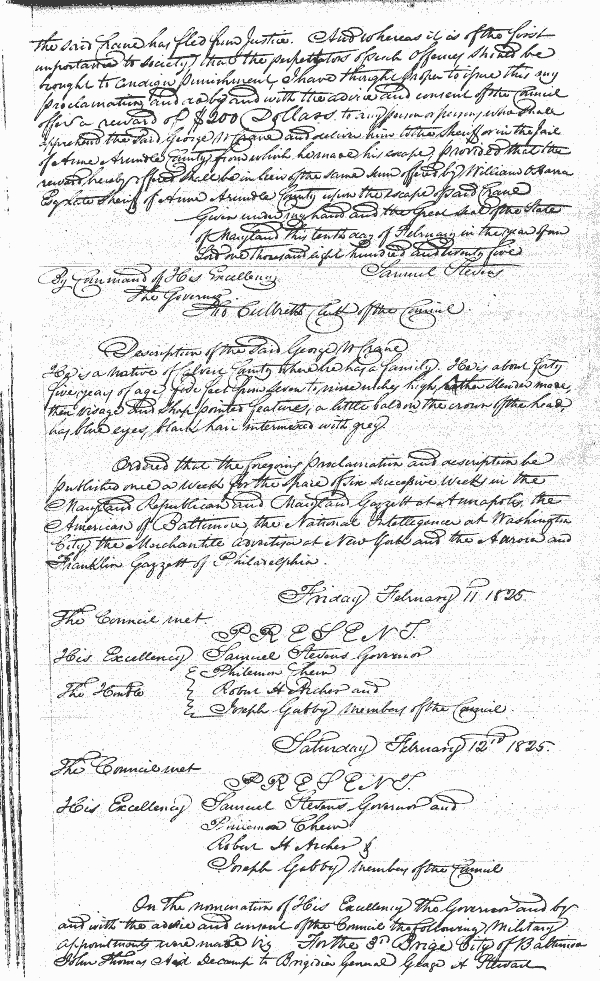 the said Crane has fled from Justice. And whereas it is of the first
importance to society, that the perpetrators of such Offences should be
brought to condign punishment, I have thought proper to issue this my
proclamation and do by and with the advice and consent of the Council
offer a reward of $200 Dollars to any person or persons, who shall
apprehend the said George W Crane and deliver him to the Sheriff or in the jail
of Anne Arundle County from which he made his escape, provided that the
reward hereby offered shall be in lieu of the same sum offered by William O'Hara
Esqr late Sheriff of Anne Arundle County upon the escape of said Crane
Given under my hand and the Great Seal of the State
of Maryland this tenth day of February in the year of our
Lord one thousand eight hundred and twenty five
By Command of His Excellency Samuel Stevens
The Governor
Tho Culbreth Clerk of the Council
Description of the said George W Crane
He is a native of Calvert County where he has a family. He is about forty
five years of age, five feet from seven to nine inches high, rather slender made,
thin visage and sharp pointed features, a little bald on the crown of the head,
has blue eyes, black hair intermixed with grey
Ordered that the foregoing proclamation and description be
published once a week for the space of six successive weeks in the
Maryland Republican and Maryland Gazett at Annapolis, the
American of Baltimore, the National Intelligencer at Washington
City, the Merchantile advertiser at New York and the Aurora and
Franklin Gazzett of Philadelphia.
Friday February 11 1825
The Council met
PRESENT.
His Excellency Samuel Stevens Governor
Philemon Chew
The Honble Robert H Archer and
Joseph Gabby members of the Council.
Saturday February 12th 1825.
The Council met
PRESENT.
His Excellency Samuel Stevens Governor and
Philemon Chew
Robert H Archer &
Joseph Gabby members of the Council
On the nomination of His Excellency the Governor and by
and with the advice and consent of the Council the following Military
appointments were made viz For the 3rd Brige City of Baltimore
John Thomas Aid Decamp to Brigidier General George H Steuart